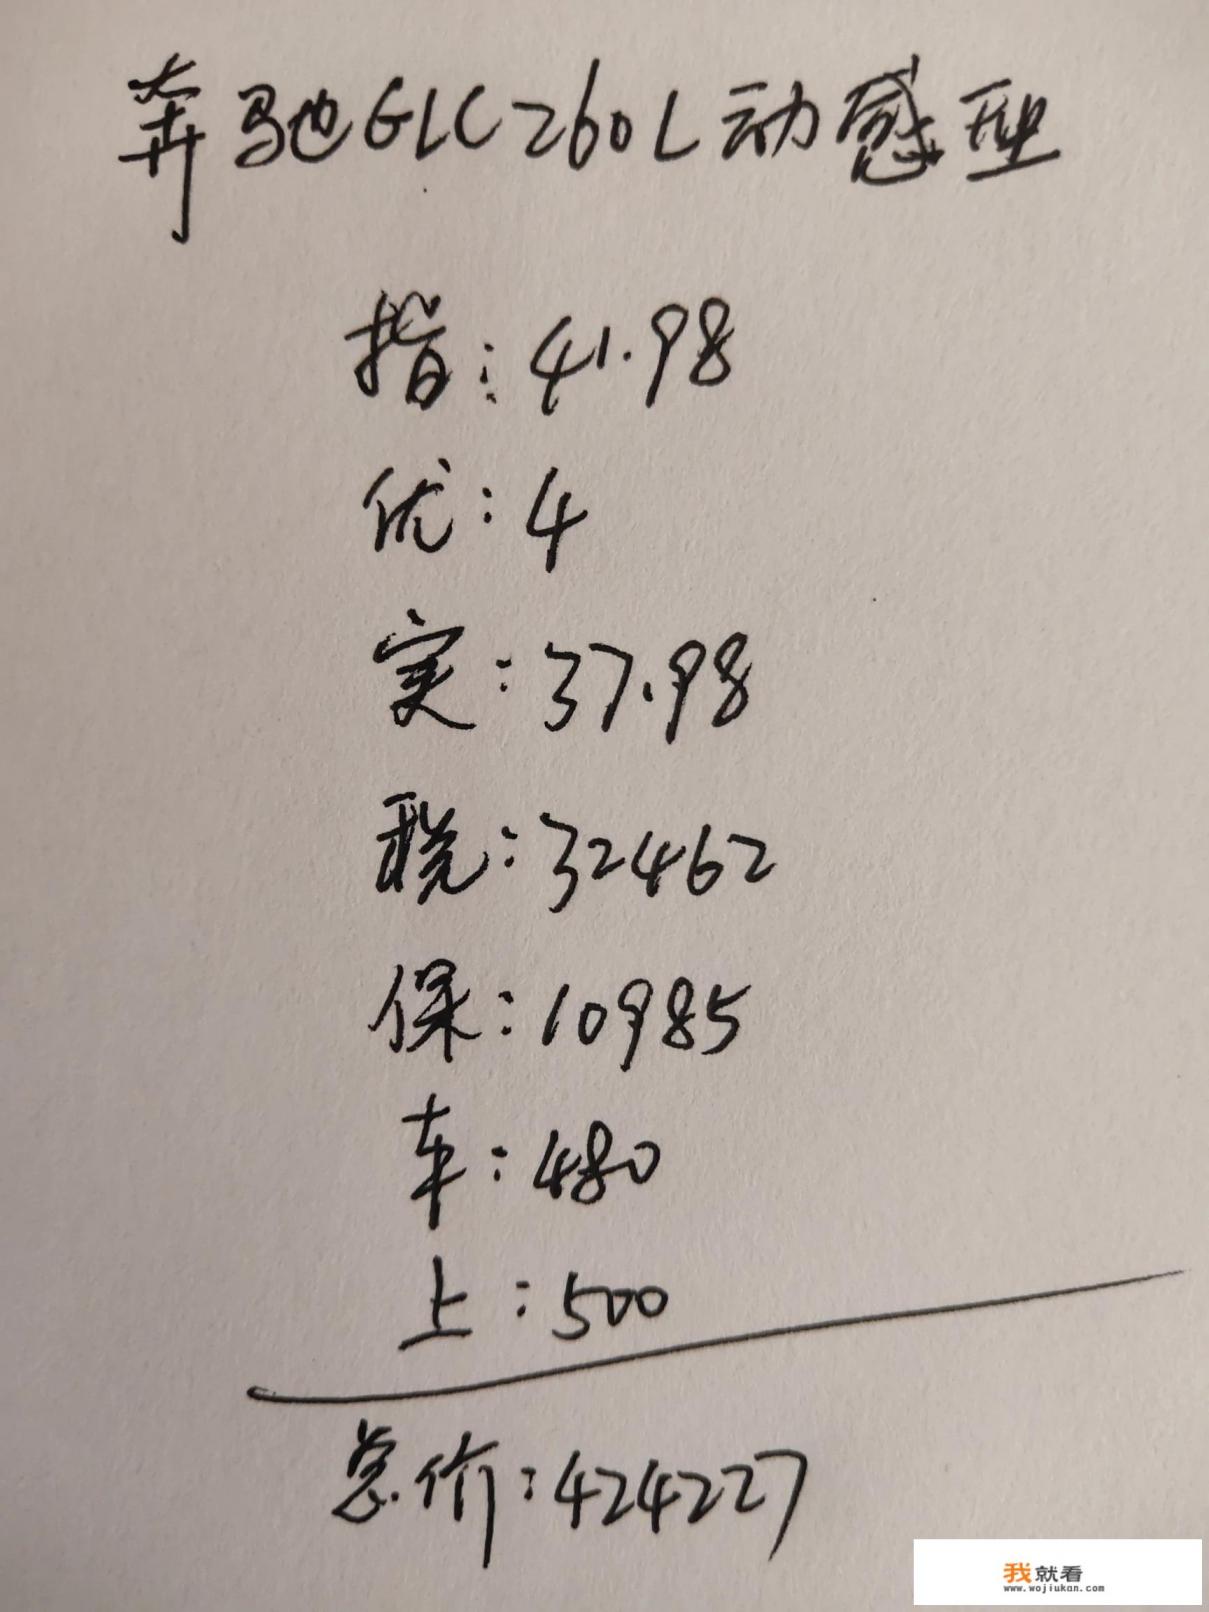 奔驰GLC260L动感型
指:41.98
优:4
实:37.98
税:32462
保:10985
车:480
上:500
总价:424227
我就看
www.wojiukan.com